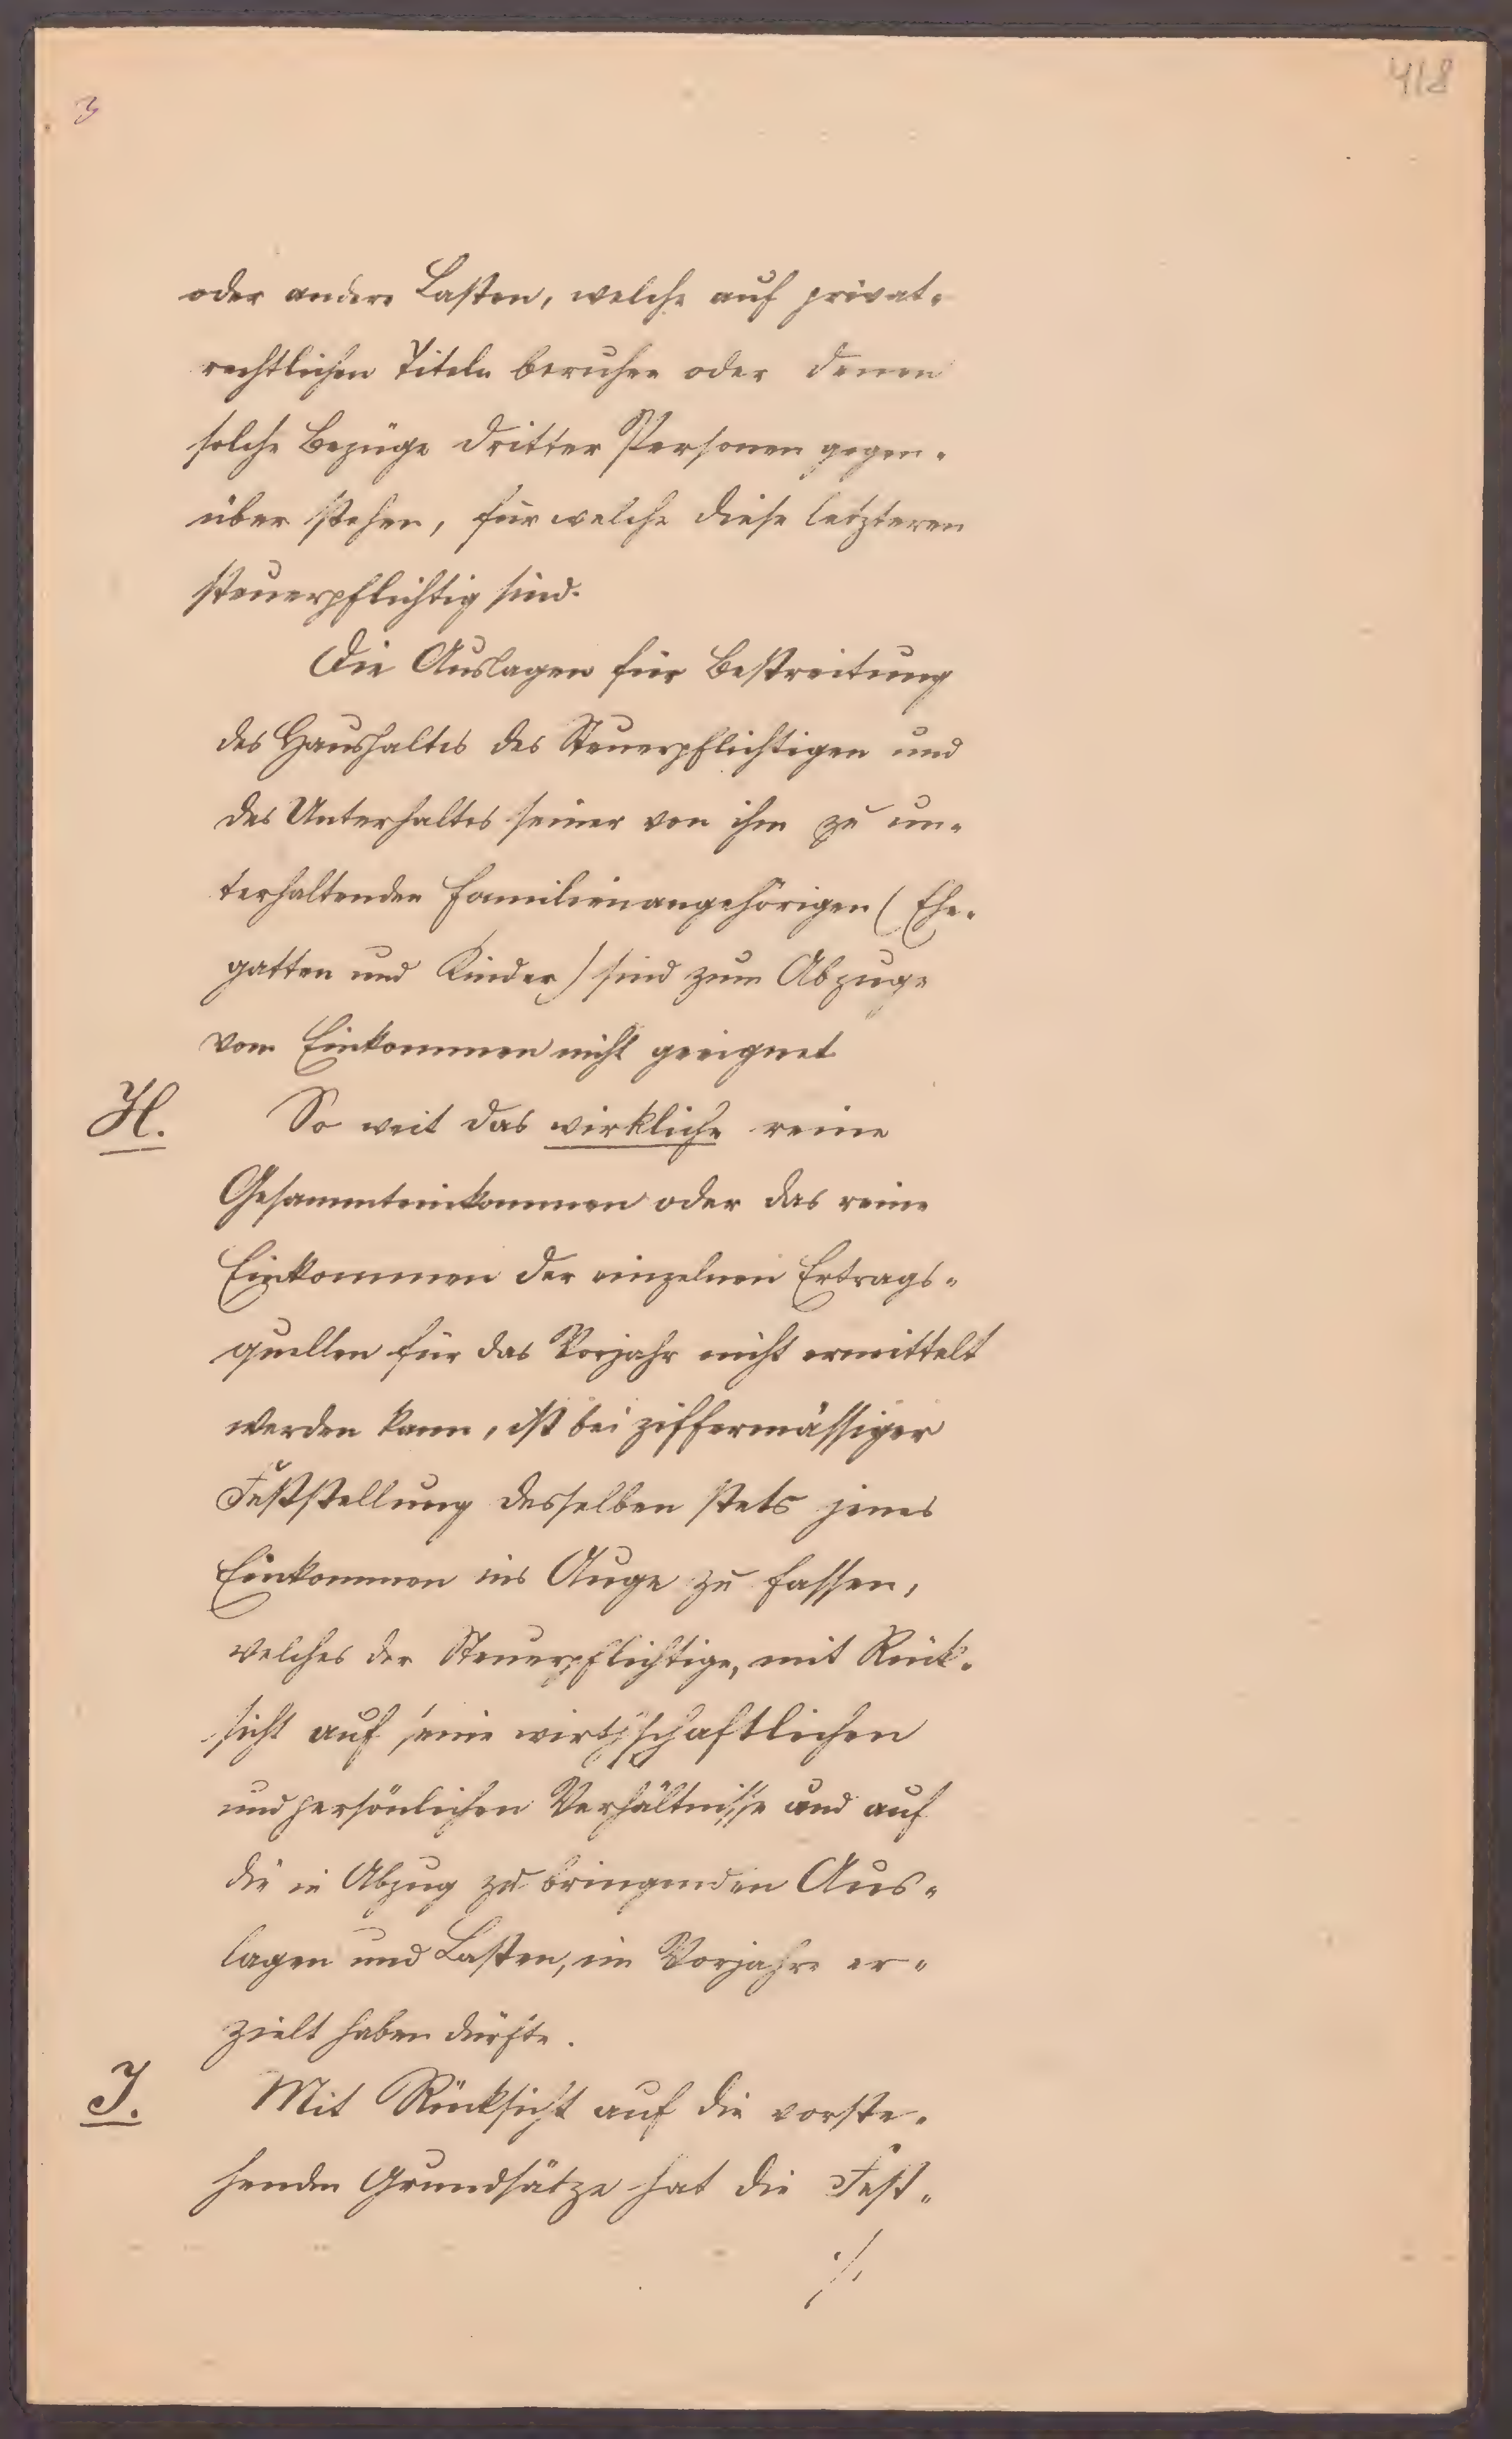 418
3
oder andere Lasten, welche auf privat-
rechtlichen Titeln beruhen oder denen
solche Bezüge dritter Personen gegen-
über stehen, für welche diese letzteren
steuerpflichtig sind.
Die Auslagen für Bestreitung
des Haushaltes des Steuerpflichtigen und
des Unterhaltes seiner von ihm zu un-
terhaltenden Familienangehörigen (Ehe-
gatten und Kinder) sind zum Abzuge
vom Einkommen nicht geeignet
H. So weit das wirkliche reine
Gesammteinkommen oder das reine
Einkommen der einzelnen Ertrags-
quellen für das Vorjahr nicht ermittelt
werden kann, ist bei ziffermässiger
Feststellung desselben stets jenes
Einkommen ins Auge zu fassen,
welches der Steuerpflichtige, mit Rück-
sicht auf seine wirthschaftlichen
und persönlichen Verhältnisse und auf
die in Abzug zu bringenden Aus-
lagen und Lasten, im Vorjahre er-
zielt haben dürfte.
J. Mit Rücksicht auf die vorste-
henden Grundsätze hat die Fest-
./.